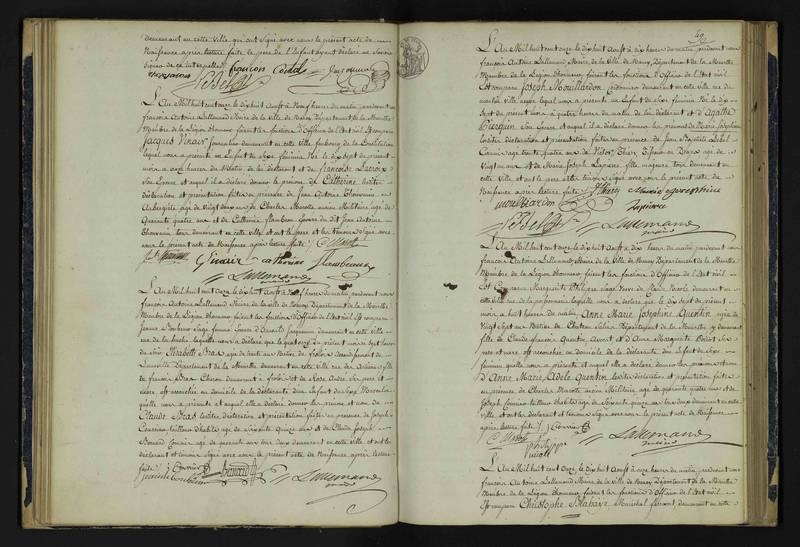 demeurant en cette Ville qui ont Signé avec nous le présent acte de
Naissance après lecture faite le pere de l'Enfant ayant déclaré ne savoir
signer de ce interpellé
françois
L'An Mil huit cent onze le dix huit Aoust à Neuf heures du matin, pardevant nous
françois Antoine Lallemand Maire de la Ville de Nancy Département de la Meurthe
Membre de la Légion d'honneur faisant les fonctions d'Officier de l'État civil Est comparu
Jacques
demeurant en cette ville faubourg de la Constitution
lequel nous a présenté un Enfant du Sexe féminin Né le dix Sept du présent
mois à onze heures du Matin de lui déclarant et de françoise Lacroix
Son Epouse et auquel il a déclaré donner le prénom de Catherine lesdites
déclaration et présentation faites en présence de Jean Antoine Thouvenin
Aubergiste agé de Vingt deux ans de Charles Marotte ancien Militaire agé de
Quarante quatre ans et de Catherine flambeau Epouse du dit Jean Antoine
Thouvenin tous demeurant en cette ville et ont le pere et les temoins Signé avec
nous le présent acte de Naissance après lecture faite
catherine flambeaux
Lallemand
maire
L'An Mil huit cent onze le dix huit Aoust à Neuf heures du matin, pardevant nous
françois Antoine Lallemand Maire de la Ville de Nancy Département de la Meurthe
Membre de la Légion d'honneur faisant les fonctions d'Officier de l'État civil Est comparu
Jeanne
sage femme Epouse de
demeurant en cette ville
rue de la hache laquelle nous a déclaré que le quatorze du présent mois à sept heures
du soir Elizabeth Bras agée de trente ans Native de
Luneville Département de la Meurthe demeurant en cette ville rue des Artisans fille
de françois Bras
demeurant à
et de
ses pere et
mere est accouchée au domicile de la déclarante d'un Enfant du Sexe Masculin
qu'elle nous a présenté et auquel elle a déclaré donner les prénom et nom de
Claude Bras lesdites déclaration et présentation faites en présence de Joseph
agé de Soixante Quinze ans et de Claude Joseph
agé de quarante ans tous deux demeurant en cette ville et ont les
déclarant et temoins Signé avec nous le présent acte de Naissance après lecture
faite
Lallemand
maire
49
L'An Mil huit cent onze le dix huit Aoust à dix heures du matin, pardevant nous
françois Antoine Lallemand Maire de la Ville de Nancy Département de la Meurthe
Membre de la Légion d'honneur faisant les fonctions d'Officier de l'État civil
Est comparu Joseph Mouillardon Cordonnier demeurant en cette ville rue du
lequel nous a présenté un Enfant du Sexe féminin Né le dix
Sept du présent mois à quatre heures du matin de lui déclarant et d'Agathe
Pierquin Son Epouse et auquel il a déclaré donner les prénoms de Marie Josephine
lesdites déclaration et présentation faites en présence de Jean Baptiste Lebel
agé de trente quatre ans de Victor Thiery
agé de
Vingt un ans et de Marie Joseph Lapierre fille majeure tous demeurant en
cette ville et ont le pere et les temoins Signé avec nous le présent acte de
Naissance après lecture faite
Thiery Marie josephine
mouillardon
lapierre
Lebel
Lallemand
maire
L'An Mil huit cent onze le dix huit Aoust à dix heures du matin, pardevant nous
françois Antoine Lallemand Maire de la Ville de Nancy Département de la Meurthe
Membre de la Légion d'honneur faisant les fonctions d'Officier de l'État civil
Est Comparue Marguerite Philippe Sage femme
demeurant en
cette ville rue de la poissonnerie laquelle nous a déclaré que le dix Sept du présent
mois à huit heures du matin, Anne Marie Josephine Quentin agée de
Vingt Sept ans Native de Chateau Salins Département de la Meurthe y demeurant
fille de Claude françois Quentin, Avocat et d'Anne Marguerite
ses
pere et mere est accouchée au domicile de la déclarante d'un Enfant du Sexe
féminin qu'elle nous a présenté et auquel elle a déclaré donner les prénoms et nom
d'Anne Marie Adele Quentin lesdites déclaration et présentation faites
en présence de Charles Marotte ancien Militaire agé de quarante quatre ans et de
Joseph
agé de Soixante Quinze ans tous deux demeurant en cette
ville et ont les déclarant et temoins Signé avec nous le présent acte de Naissance
après lecture faite
philippe
Lallemand
maire
L'An Mil huit cent onze le dix huit Aoust à onze heures du matin, pardevant nous
françois Antoine Lallemand Maire de la Ville de Nancy Département de la Meurthe
Membre de la Légion d'honneur faisant les fonctions d'Officier de l'État civil
Est comparu Christophe
Maréchal ferrant, demeurant en cette